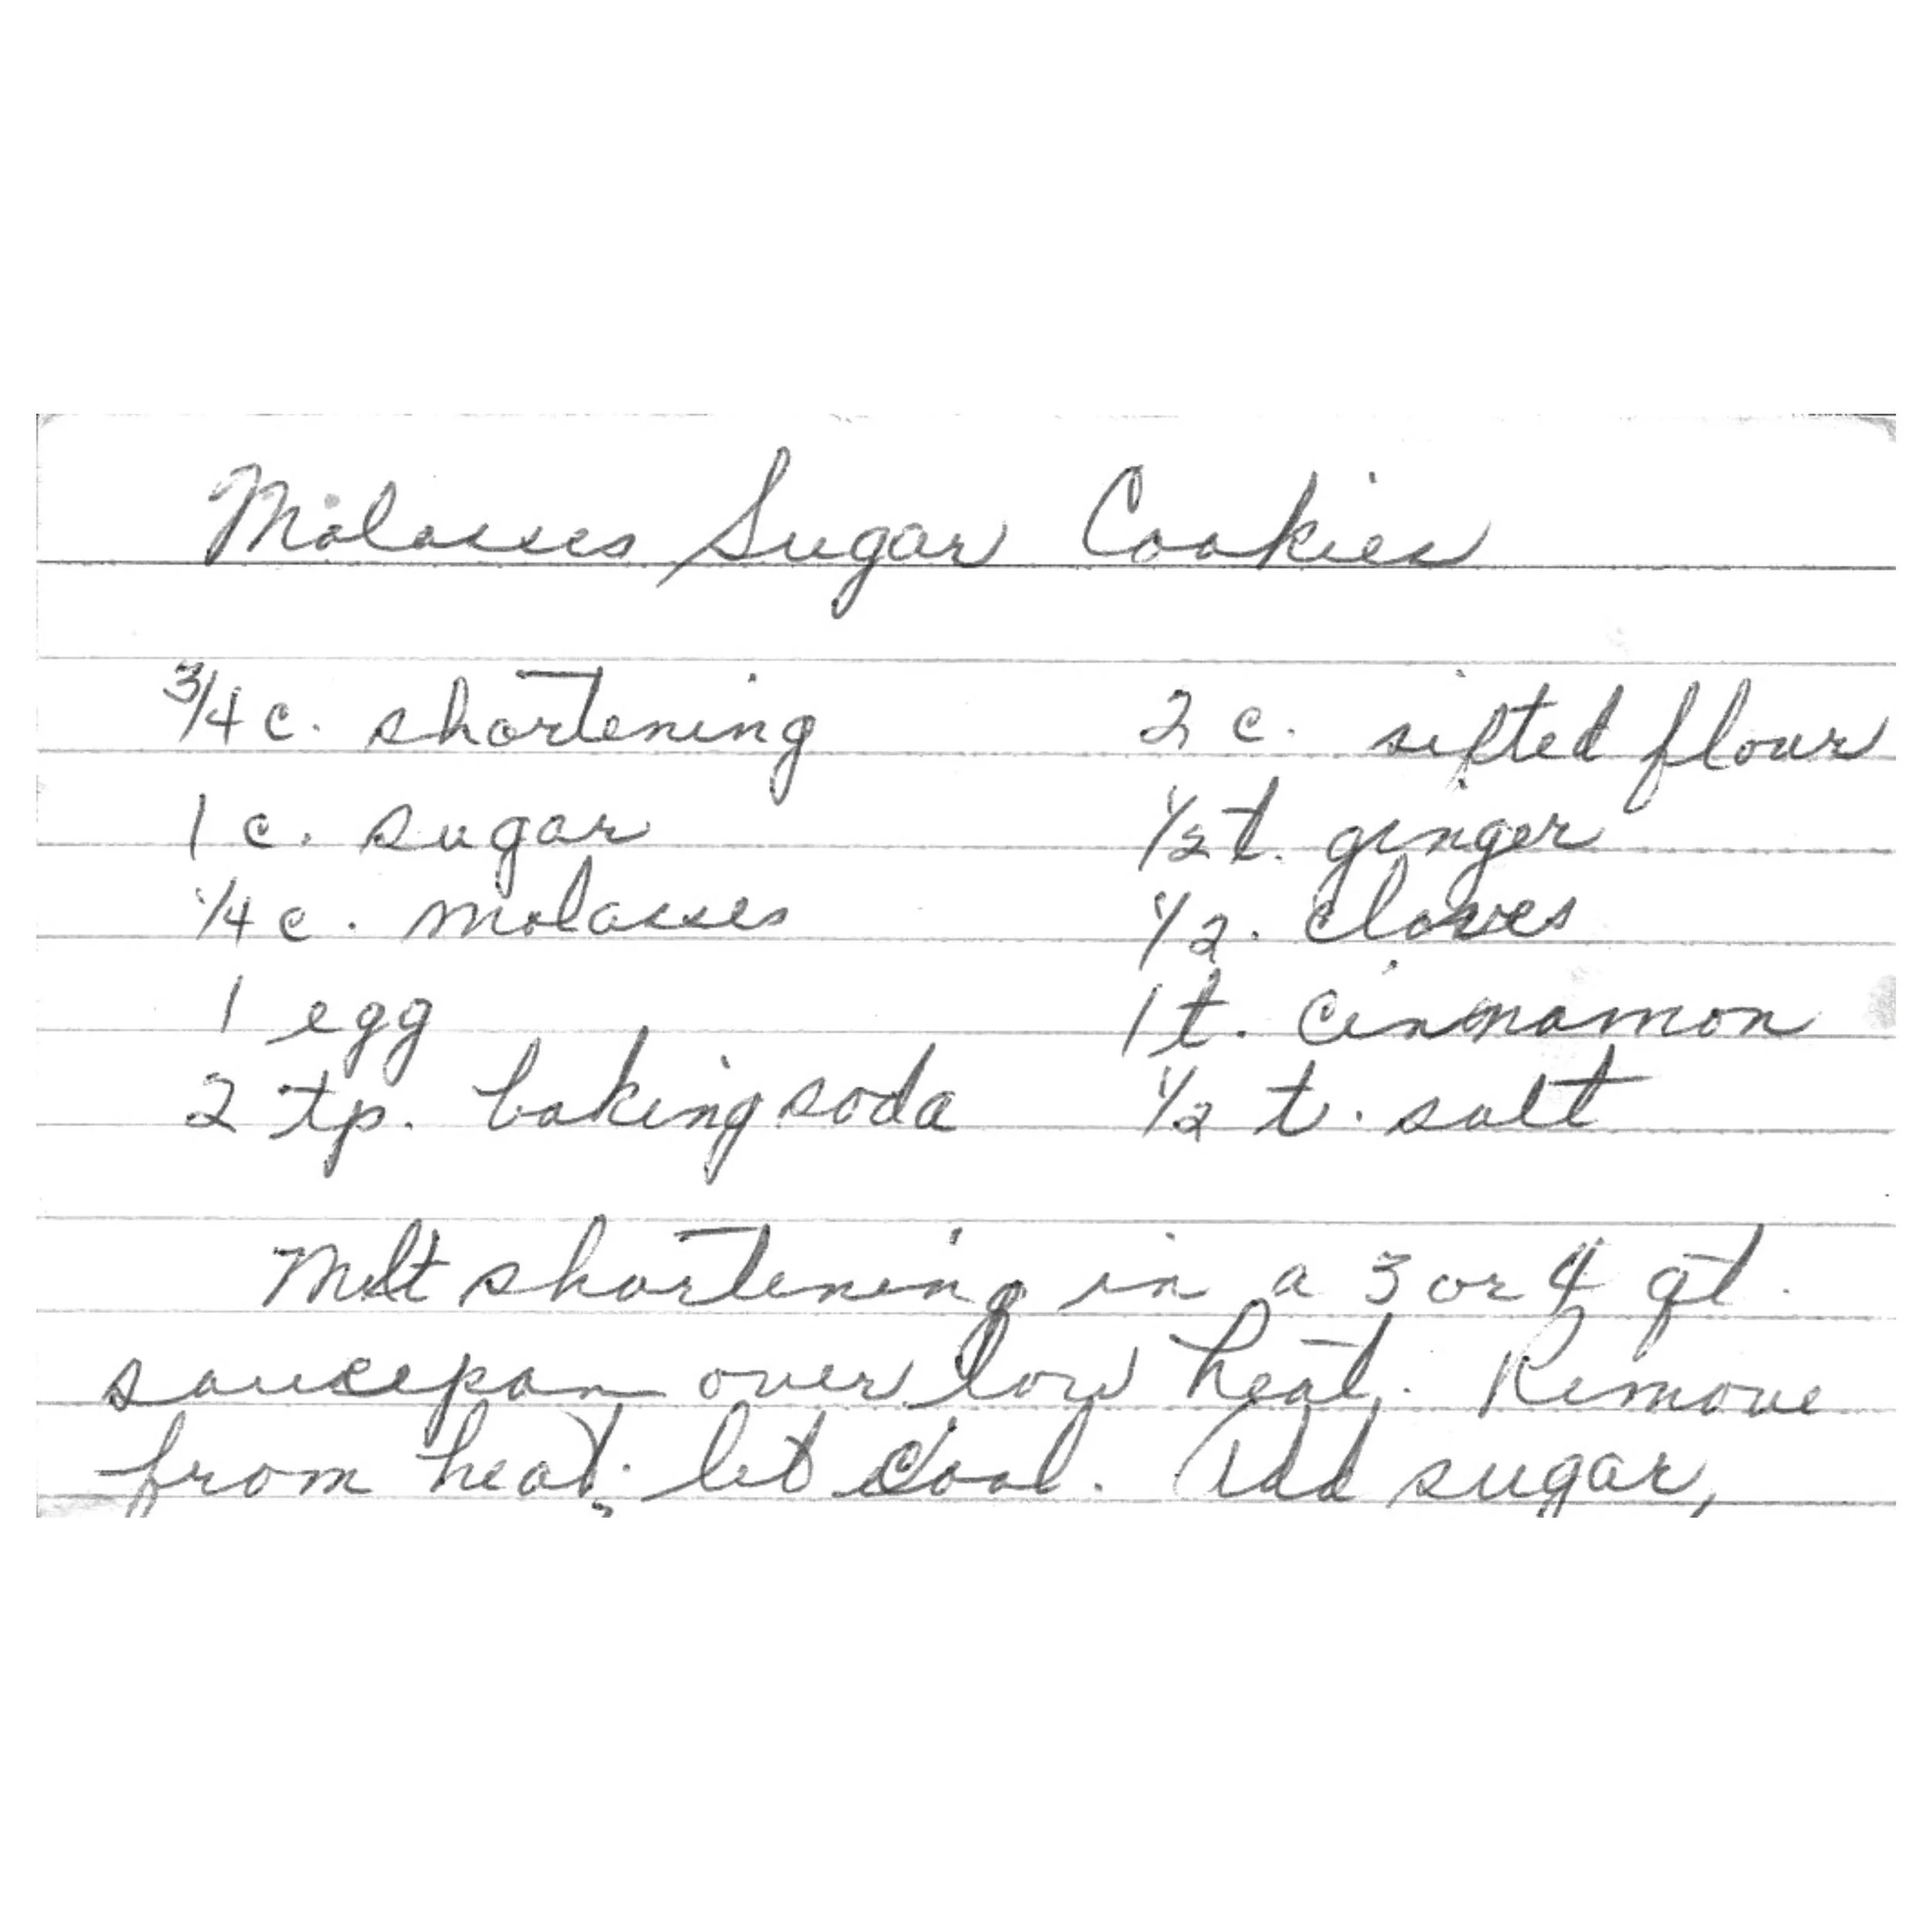 Molasses Sugar Cookies
3/4 c. shortening 2 c. sifted flour
1 c. sugar 1/2 t. ginger
1/4 c. molasses 1/2. cloves
1 egg 1 t. cinnamon
2 tp. baking soda 1/2 t. salt
Melt shortening in a 3 or 4 qt.
saucepan over low heat. Remove
from heat; let cool. Add sugar,